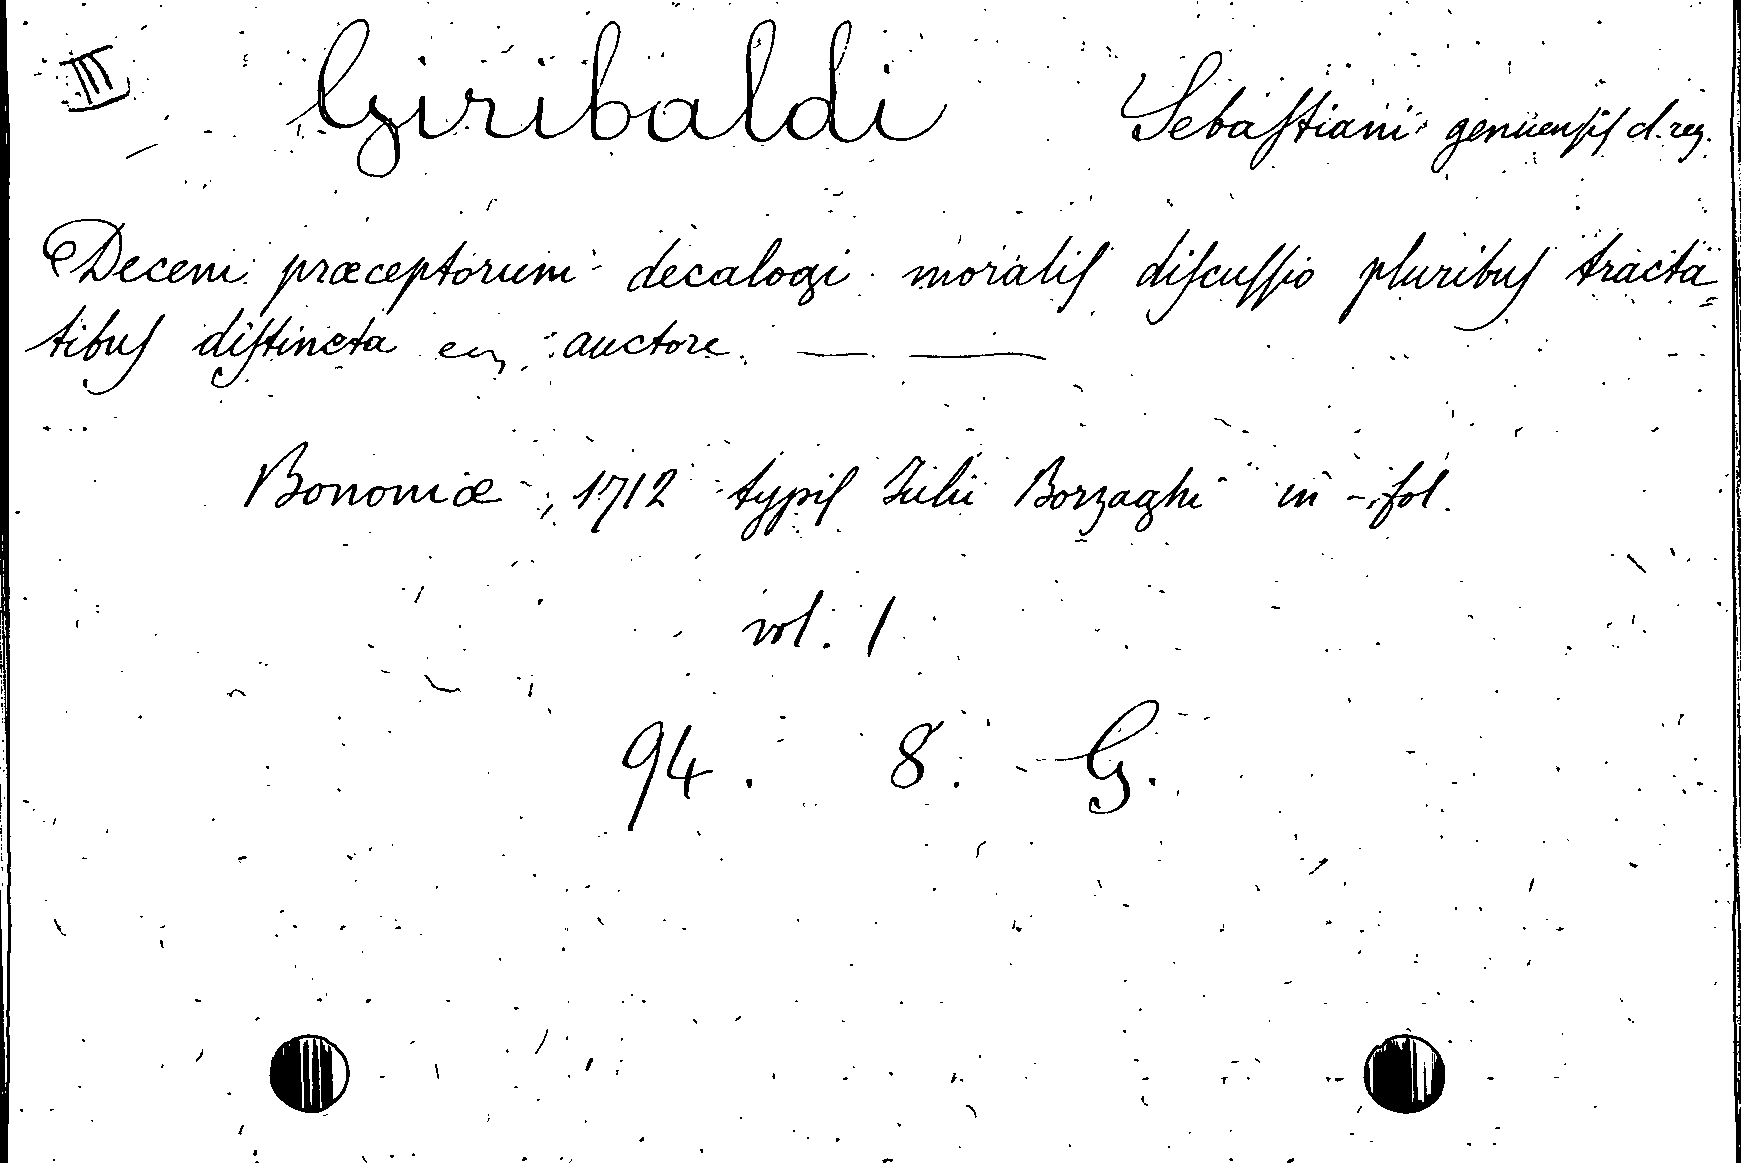 III Giribaldi Sebaſtiani genuenſiſ cl. reg.
Decem præceptorum decalogi moraliſ diſcuſſio pluribuſ tracta=
tibuſ diſtincta auctore — —
Bononiæ, 1712 typiſ Iulii Borzaghi in-fol.
vol. 1
94. 8. G.